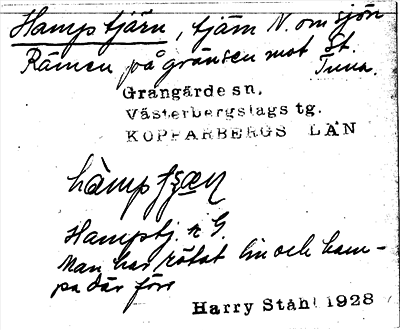 Hampstjärn, tjärn N. om sjön
Rämen på gränsen mot St.
Tuna.
Grangärde sn.
Västerbergslags tg.
KOPPARBERGS LÄN
Hampstj. r G.
Man har rötat lin och ham-
pa där förr
Harry Ståhl 1928